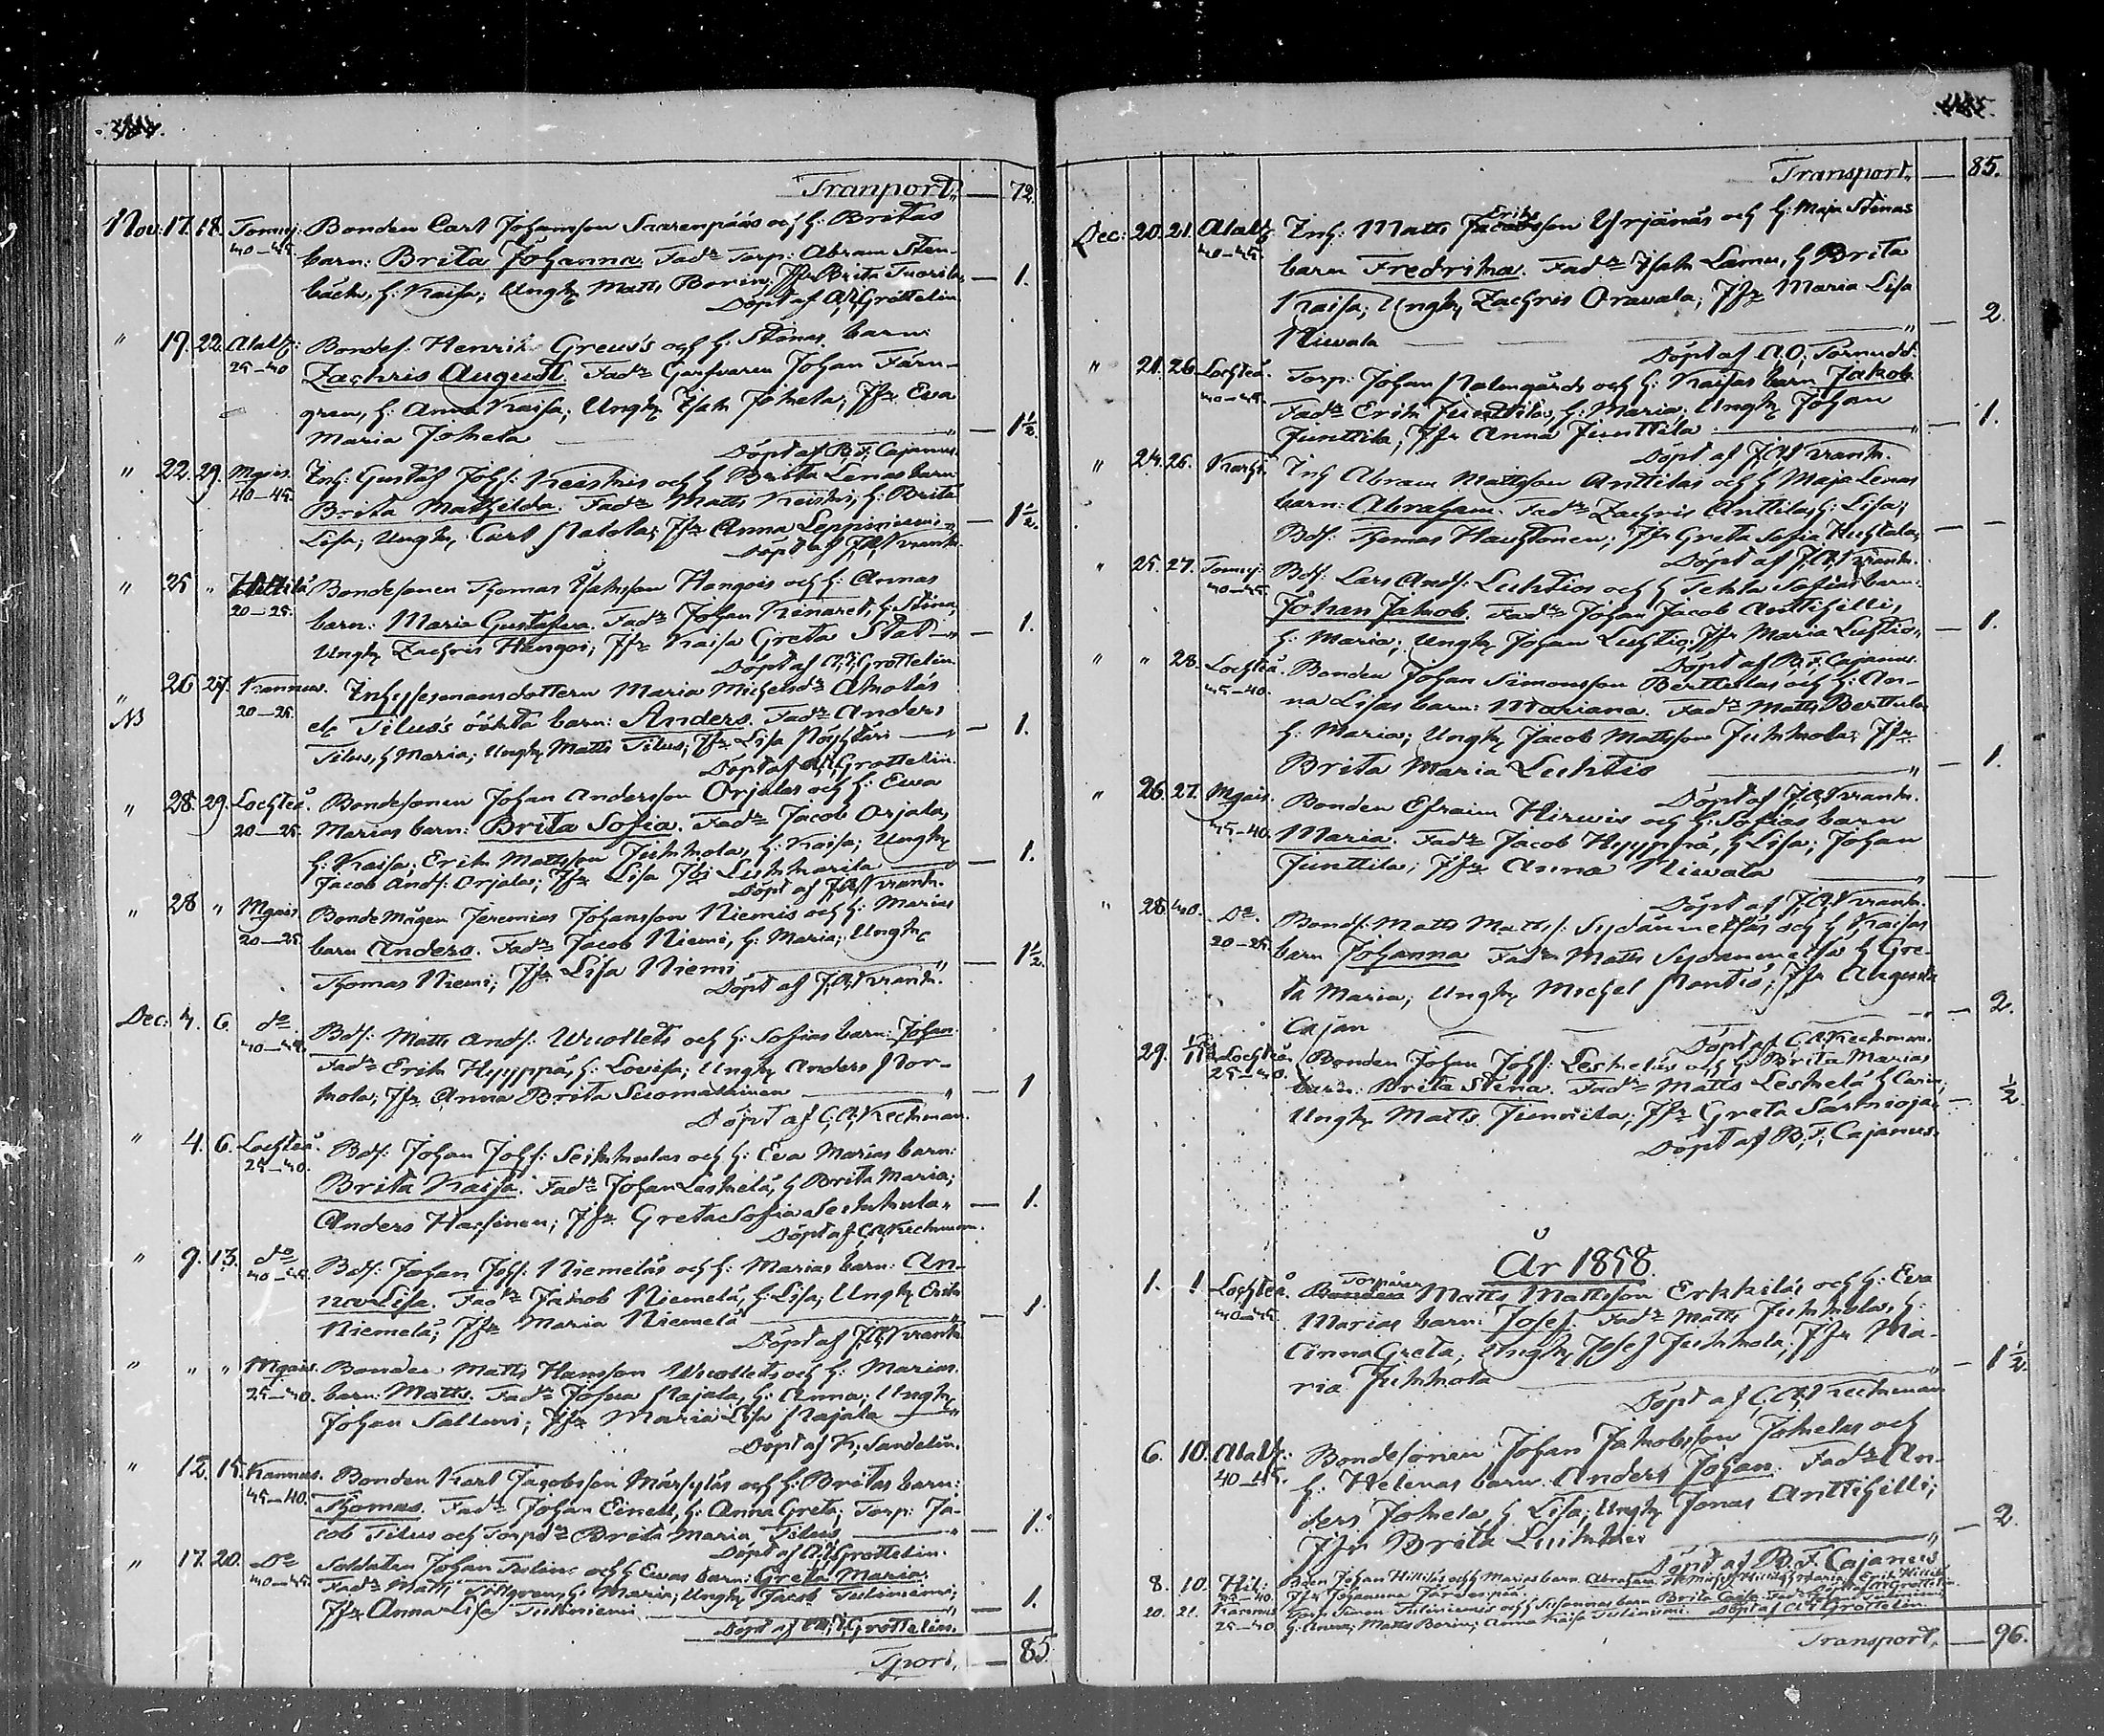 Tranport, — 72.
Nov: 17. 18. Tomuj: Bonden Carl Johansson Saarenpääs och h: Britas
40—45. barn: Brita Johanna. Fadr Torp: Abram Sten-
bäck, h: Kaisa; Ungk Matts Borin; Jfr Brita Tuorila, — 1.
Döpt af A. Grottelin
" 19. 22. Alalf: Bondes. Henrik Greus's och h. Stinas barn:
25—40 Zachris August. Fadr Garfvaren Johan Färn-
gren, h: Anna Kaisa; Ungk Isak Jokela; Jfr Ewa
Maria Jokela " — 1½.
Döpt af B. F. Cajanus.
" 22. 29. Mgais. Inh: Gustaf Johs: Keiskis och h Brita Lenas barn
40—45. Brita Mathilda. Fadr Matts Keiski, h: Brita
Lisa; Ungk, Carl Ratola; Jfr Anna Leppiniemi — 1½.
Döpt af J. A. Krank.
" 25 " Bondesonen Thomas Isaksson Hangois och h: Annas
20—25. barn: Maria Gustafva. Fadr Johan Kinaret, h: Stina,
Ungk Zachris Hangoi; Jfr Kaisa Greta — 1.
Döpt af A. Grottelin
" 26 27. Kannus. Inhysesmansdottern Maria Michelsdr Aholas
NB 20—25. el. Tilus's oäkta barn: Anders. Fadr Anders
Tilus, h Maria; Ungk Matts Tilus; Jfr Lisa " — 1.
Döpt af A. Grottelin.
" 28. 29. Lochteå. Bondesonen Johan Andersson Orjalas och h: Ewa
20—25. Marias barn: Brita Sofia. Fadr Jacob Orjala,
h: Kaisa; Erik Mattsson Juhkola, h: Kaisa; Ungk
Jacob Ands: Orjala; Jfr Lisa — 1.
Döpt af J. A. Krank.
" 28 " Mgais. Bondemågen Jeremias Johansson Niemis och h: Marias
20—25. barn Anders. Fadr Jacob Niemi, h: Maria; Ungk
Thomas Niemi; Jfr Lisa Niemi " — 1½.
Döpt af J. A. Krank.
Dec: 4. 6. do. Bds: Matts Ands: Wuollets och h: Sofias barn: Johan.
40—45. Fadr Erik Hyyppä, h: Lovisa; Ungk Anders Kor-
kola; Jfr Anna Brita Suomalainen " — 1
Döpt af C. A. Keckman.
" 4. 6. Lochteå. Bds: Johan Johs: Seikkulas och h: Eva Marias barn:
25—40. Brita Kaisa. Fadr Johan Leskelä, h Brita Maria;
Anders Hassinen; Jfr Greta Sofia Seikkula " — 1.
Döpt af C. A. Keckman.
" 9. 13. do Bds: Johan Johs: Niemeläs och h: Marias barn: An-
40—45. na Lisa. Fadr Jakob Niemelä, h: Lisa; Ungk Erik
Niemelä; Jfr Maria Niemelä " — 1.
Döpt af J. A. Krank
" " " Mgais. Bonden Matts Hansson Wuollets och h: Marias
25—40. barn: Matts. Fadr Josua Rajala, h: Anna; Ungk
Johan Salmi; Jfr Maria Lisa Rajala "
Döpt af K. Sandelin.
" 12. 15. Kannus. Bonden Karl Jacobsson Märsyläs och h: Britas barn:
45—40. Thomas. Fadr Johan Einell, h: Anna Greta; Torp: Ja-
cob Tilus och Torpdr Brita Maria Tilus " — 1.
Döpt af A. Grottelin.
" 17. 20. Do Soldaten Johan och h Ewas barn: Greta Maria.
40—45. Fadr Matts h: Maria; Ungk Jacob Tulinienni;
Jfr Anna Lisa Tuliniemi " — 1.
Döpt af A. Grottelin.
Tport, — 85.
Transport, — 85.
Dec: 20. 21. Alalf. Inh: Matts Eriks Jacobsson Yrjänäs och h: Maja Stinas
40—45. barn Fredrika. Fadr Isak Lamu, h Brita
Kaisa; Ungk, Zachris Orawala; Jfr Maria Lisa
Niwala " — 2.
Döpt af A. O. Tornudd.
" 21. 26. Lochteå. Torp: Johan Kalmgårds och h: Kaisas barn Jakob.
40—45. Fadr Erik Junttila, h: Maria; Ungk Johan
Junttila; Jfr Anna Junttila " — 1.
Döpt af J. A. Krank.
" 24. 26. Karhi. Inh Abram Mattsson Anttilas och h Maja Lenas
barn: Abraham. Fadr Zachris Anttila, h: Lisa;
Bds: Thomas Haustonen; Jfr Greta Sofia Huhtala, — —
Döpt af J. A. Krank.
" 25. 27. Tomuj: Bds: Lars Ands: Luhtios och h Tekla Sofias barn:
40—45. Johan Jakob. Fadr Johan Jacob Anttihilli,
h: Maria; Ungk Johan Luhtio; Jfr Maria Luhtio, — 1.
Döpt af B. F. Cajanus.
" " 28. Lochteå. Bonden Johan Simonsson Berttulas och h: An-
45—40. na Lisas barn: Mariana. Fadr Matts Berttula
h: Maria; Ungk Jacob Mattsson Juhkola; Jfr
Brita Maria Luhtio " — 1.
Döpt af J. A. Krank.
" 26. 27. Mgais. Bonden Efraim Hirwis och h: Sofias barn
45—40. Maria. Fadr Jacob Hyyppä, h Lisa; Johan
Junttila; Jfr Anna Niwala " —
Döpt af J. A. Krank.
" 28. Do. Bonds: Matts Matts: Sydänmetsäs och h Kaisas
20—25. barn Johanna Fadr Matts Sydänmetsä h Gre-
ta Maria; Ungk Michel Rontio; Jfr Augusta
Cajan " — 2.
Döpt af C. A. Keckman.
29. Lochteå. Bonden Johan Johs: Leskeläs och h: Brita Marias
25—40. barn: Brita Stina. Fadr Matts Leskelä h Carin;
Ungk Matts Junttila; Jfr Greta Särkioja, — ½.
Döpt af B. F. Cajanus.
År 1858.
1. 1 Lochteå. Torparen Bonden Matts Mattsson Erkkiläs och h: Eva
40—45. Marias barn: Josef. Fadr Matts Juhkola, h:
Anna Greta; Ungk Josef Juhkola; Jfr Ma-
ria Juhkola " — 1½.
Döpt af C. A. Keckman
6. 10. Alalf: Bondesonen Johan Jakobsson Jokelas och
40—45. h: Helenas barn Anders Johan. Fadr An-
ders Jokela, h Lisa; Ungk Jonas Anttihilli;
Jfr Brita " — 2.
Döpt af B. F. Cajanus
8. 10. Hil: Bden Johan Hilliläs och h Marias barn Abraham.
45—40. Jfr Johanna Döpt af A. Grottelin.
20. 21. Kannus Simon Tuliniemis och h Susannas barn Brita Caisa.
25—40 h: Anna; Matts Borin; Anna Kaisa Tuliniemi. Döpt af A. Grottelin
Transport, — 96.